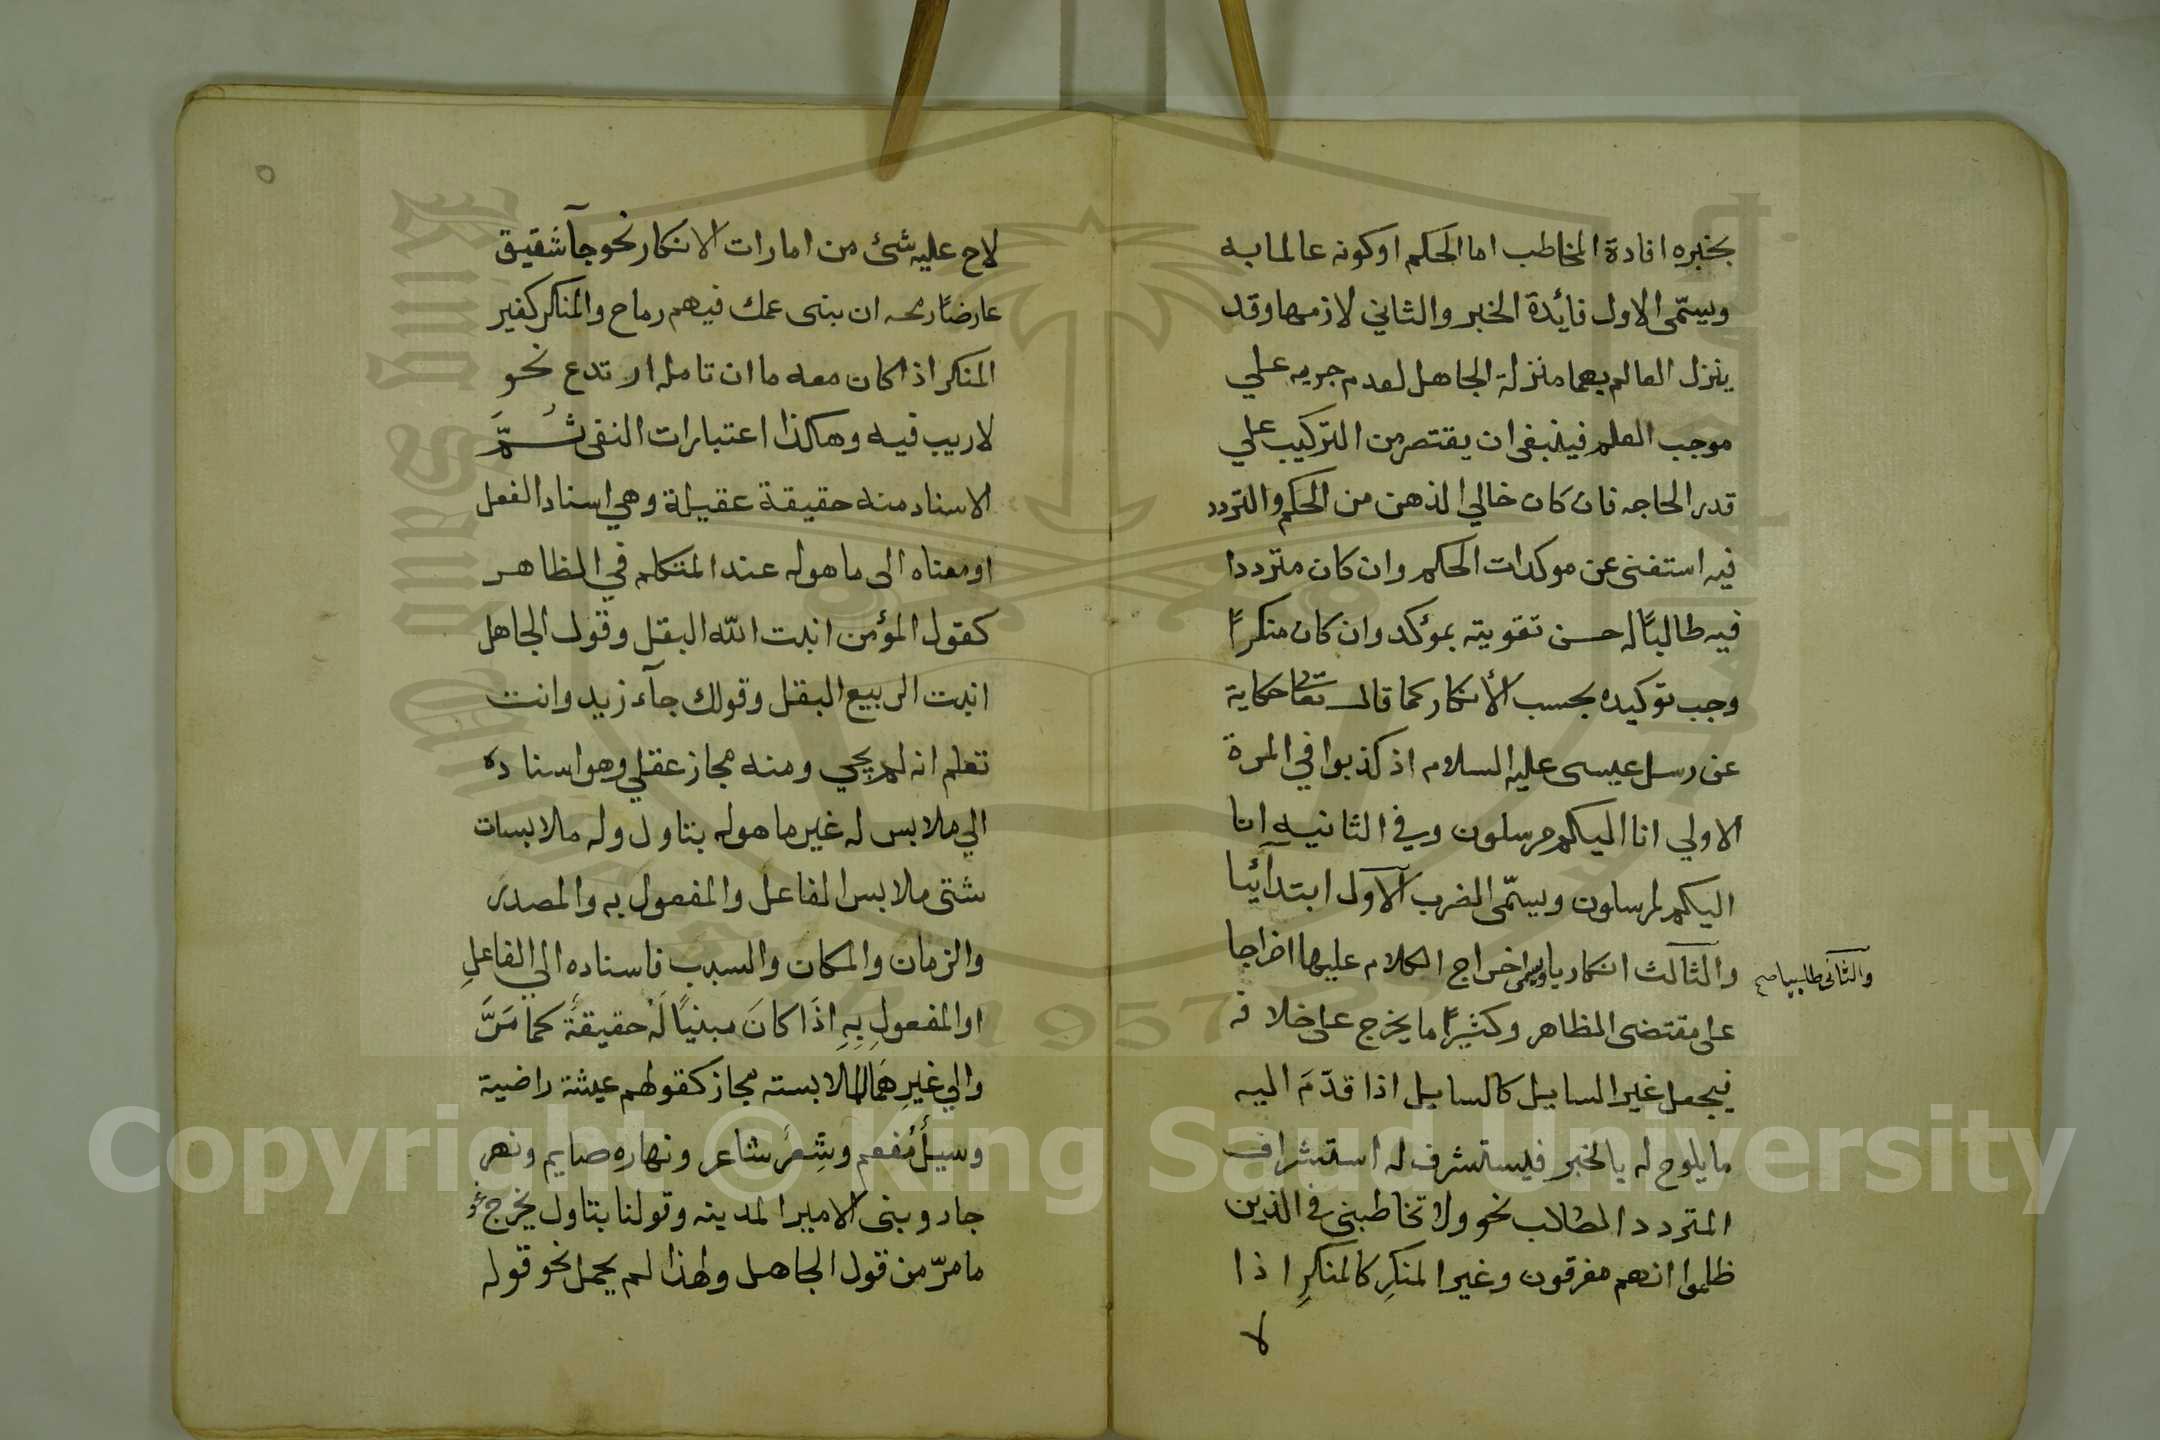 بخبره افادة المخاطب اما الحكم او كونه عالما به
ويسمّى الاول فائدة الخبر والثاني لازمها وقد
ينزل العالم بهما منزلة الجاهل لعدم جريه علي
موجب العلم فينبغى ان يقتصر من التركيب علي
قدر الحاجه فان كان خالي الذهن من الحكم والتردد
فيه استغنى عن موكدات الحكم وان كان مترددا
فيه طالبًا له حسن تقويته بموكد وان كان منكرًا
وجب توكيده بحسب الأنكار كما قال تعا حكاية
عن رسل عيسى عليه السلام اذ كذبوا في المرة
الاولي انا اليكم مرسلون وفي الثانيه انا
اليكم لمرسلون ويسمّى الضرب الآول ابتدآئيا
والثالث انكاريا ويسمى اخراج الكلام عليها اخراجا
والثانى طلبيا صح
على مقتضى الظاهر وكثيرًا ما يخرج على خلافه
فيجعل غير السايل كالسايل اذا قدّمَ اليه
ما يلوح له بالخبر فيستشرف له استشراف
المتردد الطالب نحو ولا تخاطبنى في الذين
ظلموا انهم مغرقون وغير المنكرِ كالمنكرِ اذا
لا
لاح عليه شئ من امارات الانكار نحو جآ شقيق
عارضًا رمحه ان بنى عمك فيهم رماح والمنكر كغير
المنكر اذا كان معه ما ان تامله ارتدع نحو
لاريب فيه وهاكذا اعتبارات النفى ثُمَّ
الاسناد منه حقيقة عقيلة وهي اسناد الفعل
او معناه الى ما هو له عند المتكلم في الظاهر
كقول المؤمن انبت اللّه البقل وقول الجاهل
انبت الربيع البقل وقولك جآء زيد وانت
تعلم انه لم يجي ومنه مجاز عقلي وهو اسناده
الي ملابس له غير ما هو له بتاول وله ملابسات
شتى ملابس الفاعل والمفعول به والمصدر
والزمان والمكان والسبب فاسناده الي الفاعلِ
او المفعولِ بِهِ اذَا كانَ مبنيًا لَهُ حقيقةً كما مَرَّ
والي غيرِهَما للملابسته مجاز كقولهم عيشة راضية
وسيلٌ مُفعم وشِعرٌ شاعر ونهاره صايم ونهر
جار وبنى الامير المدينه وقولنا بتاول يخرج نحو
ما مرّ من قول الجاهل ولهذا لم يحمل نحو قوله
Copyright © King Saud University
King Saud University
1957